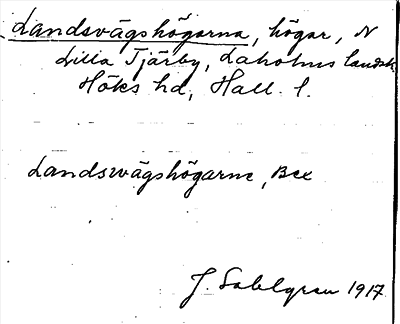 Landsvägshögarna, högar, N
Lilla Tjärby, Laholms landsk
Höks hd, Hall. l.
Landswägshögarne, Bex
J. Sahlgren 1917